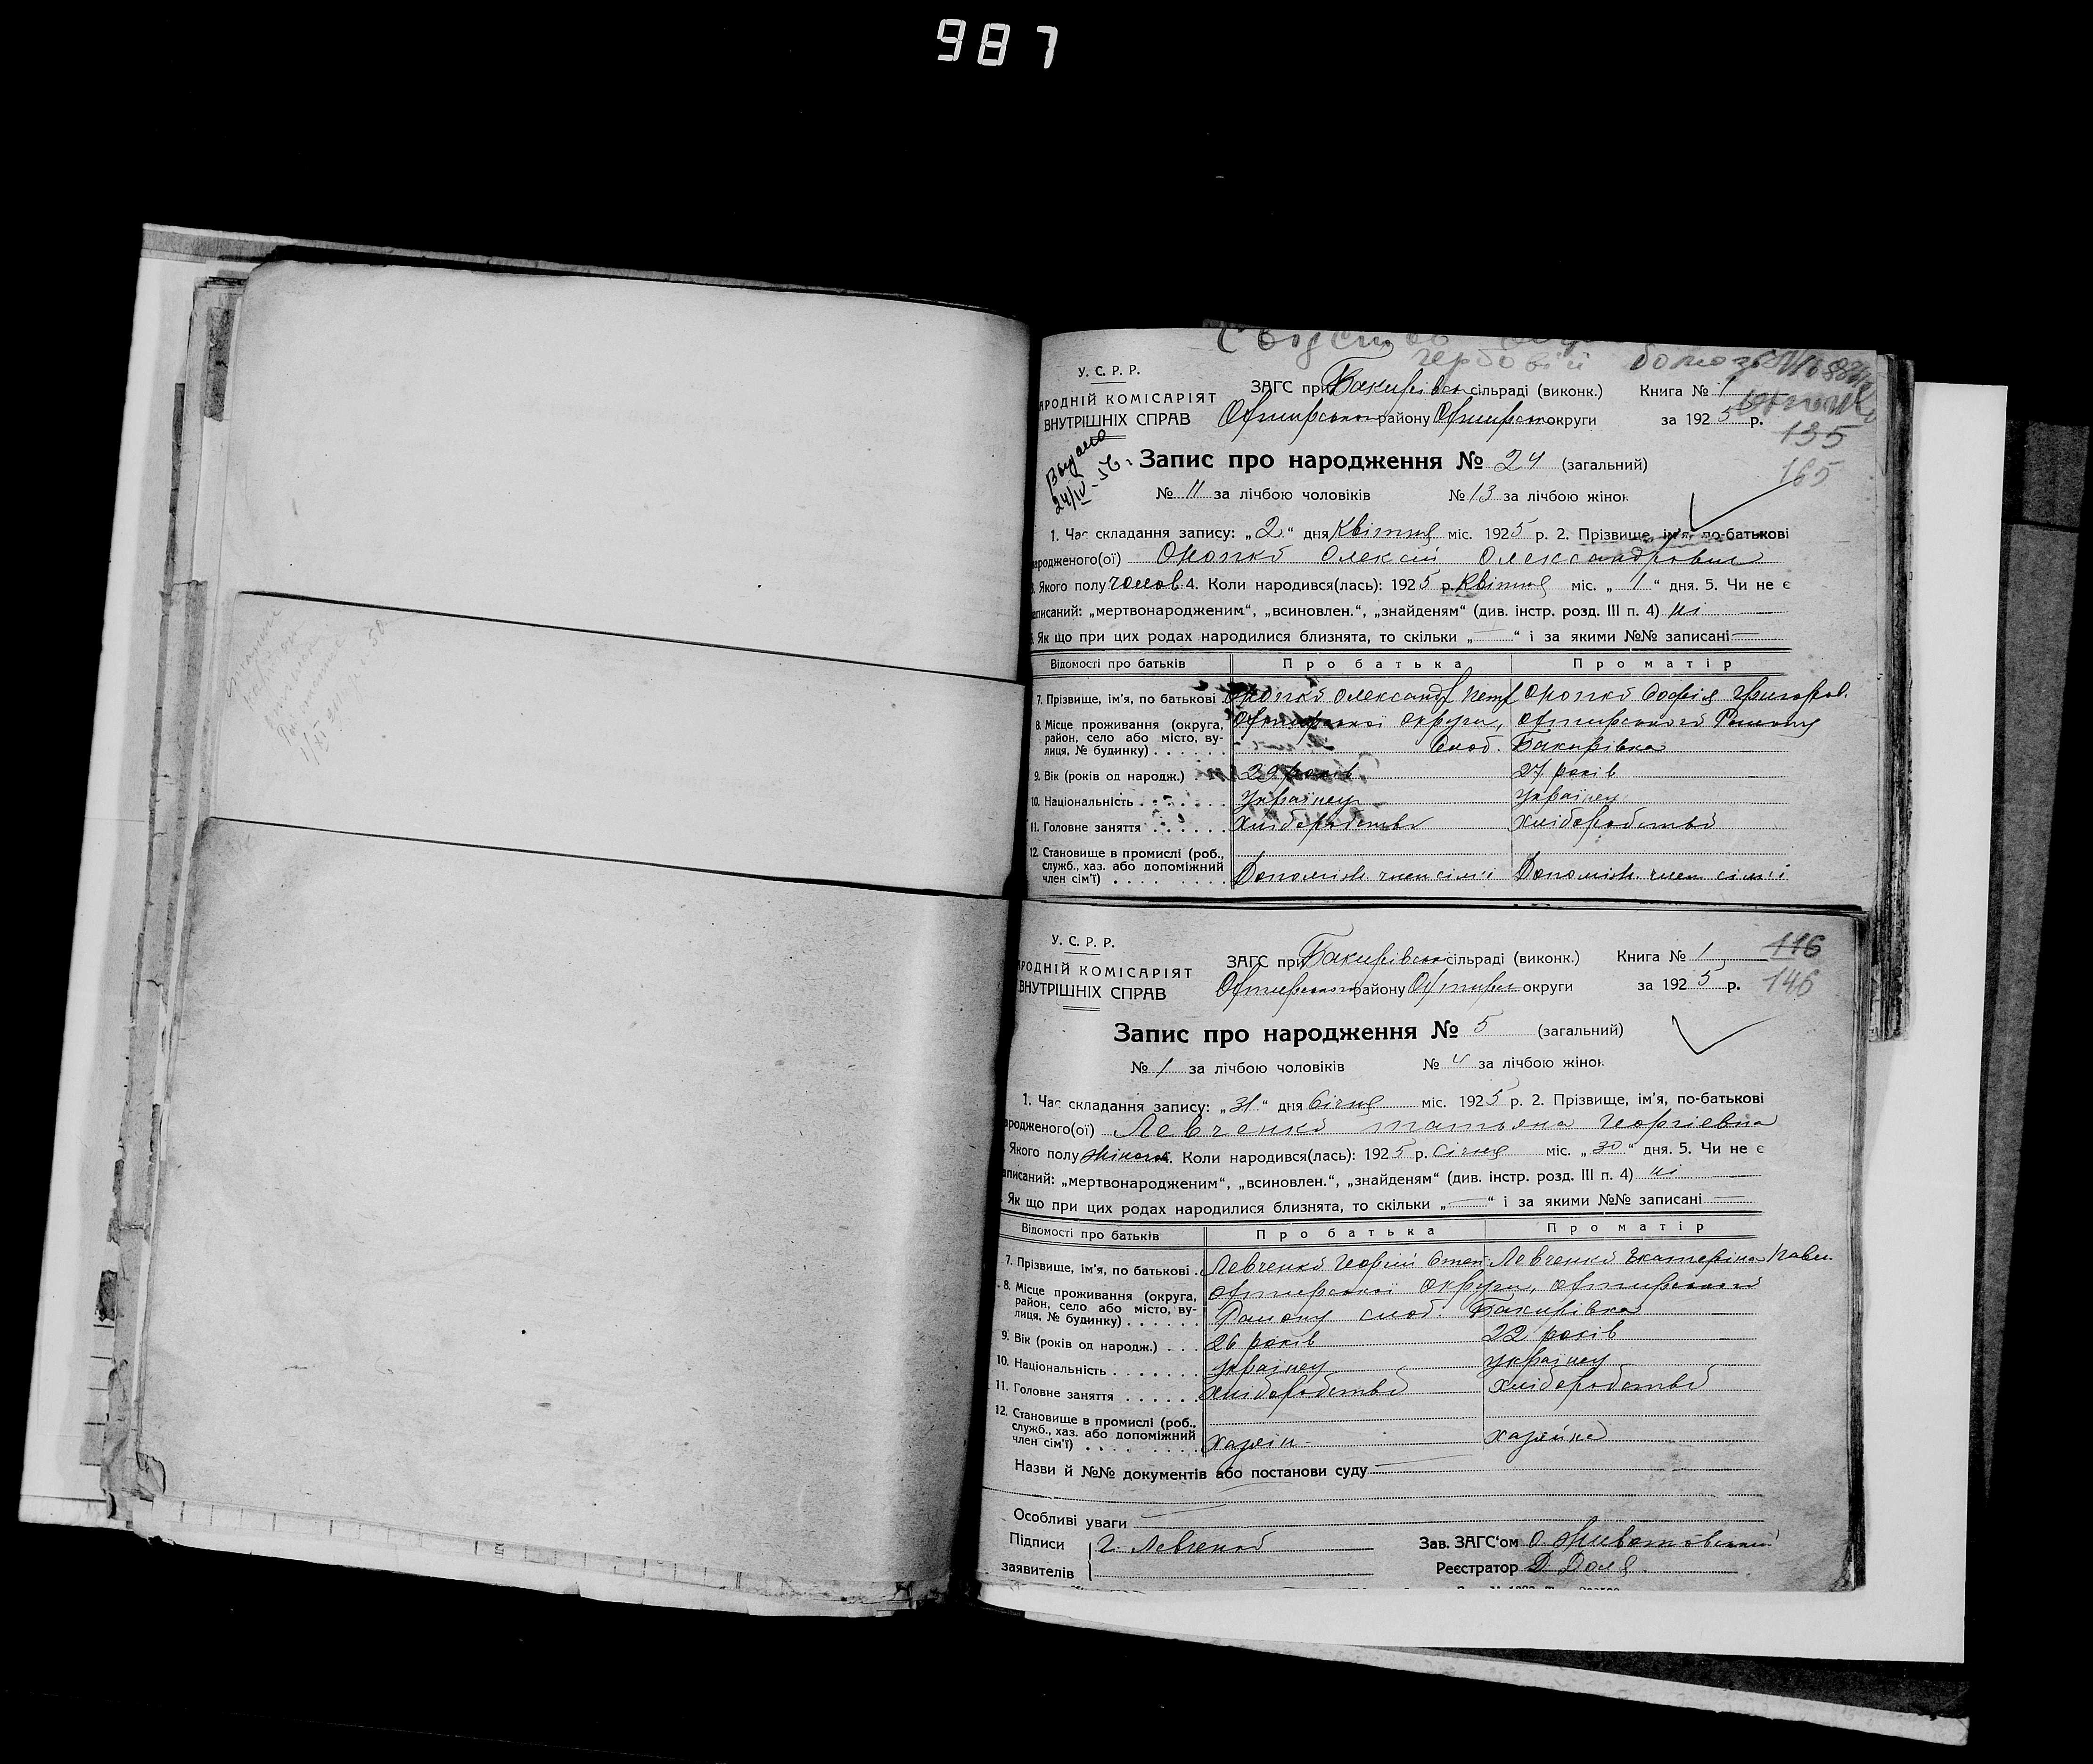 987
У. С. Р. Р.
АРОДНІЙ КОМІСАРІЯТ
ВНУТРІШНІХ СПРАВ
ЗАГС при Бакирівськ сільраді (виконк.) Книга № 1
Охтирського району Охтирськ округи за 1925 р.
135
165
Видано
24/IV-56.
Запис про народження № 24 (загальний)
№ 11 за лічбою чоловіків № 13 за лічбою жінок
1. Час складання запису: „2“ дня Квітня міс. 1925 р. 2. Прізвище, ім'я, по-батькові
ародженого(ої) Олексій Олександрович
Якого полу чолов. 4. Коли народився(лась): 1925 р. Квітня міс. „1“ дня. 5. Чи не є
аписаний: „мертвонародженим“, „всиновлен.“, „знайденям“ (див. інстр. розд. III п. 4) ні
Як що при цих родах народилися близнята, то скільки „ “ і за якими №№ записані
Відомості про батьків Про батька Про матір
7. Прізвище, ім'я, по батькові Олександр Петр Софія Григоров.
8. Місце проживання (округа, район, село або місто, вулиця, № будинку) Охтирської округи, Охтирського Району
Слоб. Бакирівка
9. Вік (років од народж.) 29 років 27 років
10. Національність Українец Українец
11. Головне заняття Хліборобство Хліборобство
12. Становище в промислі (роб.,
служб., хаз. або допоміжний
член сім'ї) Допоміж. член сім'ї Допоміж. член сім'ї
У. С. Р. Р.
РОДНІЙ КОМІСАРІЯТ
ВНУТРІШНІХ СПРАВ
ЗАГС при Бакирівськ сільраді (виконк.) Книга № 1
Охтирського району Охтирськ округи за 1925 р.
116
146
Запис про народження № 5 (загальний)
№ 1 за лічбою чоловіків № 4 за лічбою жінок
1. Час складання запису: „31“ дня Січня міс. 1925 р. 2. Прізвище, ім'я, по-батькові
ародженого(ої) Левченко Татьяна Георгіевна
Якого полу жіноч. 4. Коли народився(лась): 1925 р. Січня міс. „30“ дня. 5. Чи не є
аписаний: „мертвонародженим“, „всиновлен.“, „знайденям“ (див. інстр. розд. III п. 4) ні
Як що при цих родах народилися близнята, то скільки „ “ і за якими №№ записані
Відомості про батьків Про батька Про матір
7. Прізвище, ім'я, по батькові Левченко Георгій Степ Левченко Екатеріна Павл.
8. Місце проживання (округа, Охтирської округи, Охтирського
район, село або місто, ву-
лиця, № будинку) Району слоб. Бакирівка
9. Вік (років од народж.) 26 років 22 років
10. Національність Українец Українец
11. Головне заняття Хліборобство Хліборобство
12. Становище в промислі (роб.,
служб., хаз. або допоміжний
член сім'ї) Хазяін Хазяйка
Назви й №№ документів або постанови суду
Особливі уваги
Підписи Г. Левченко Зав. ЗАГС'ом О Животовський
заявителів Реєстратор Д Доля